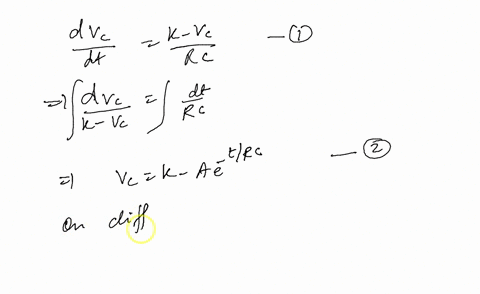 dVc/dt = K-Vc/RC — ①
=> ∫ dVc/K-Vc = ∫ dt/RC
=> Vc = K - Ae^-t/RC — ②
On diff